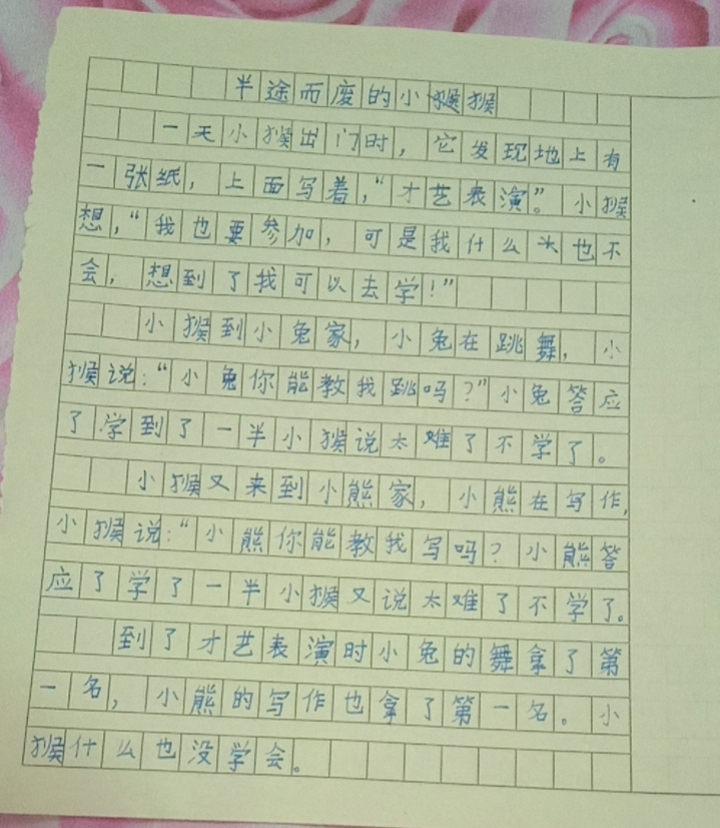 半途而废的小猴猴
一天小猴出门时，它发现地上有
一张纸，上面写着，“才艺表演”。小猴
想，“我也要参加，可是我什么头也不
会，想到了我可以去学！”
小猴到小兔家，小兔在跳舞，小
猴说：“小兔你能教我跳吗？”小兔答应
了学到了一半小猴说太难了不学了。
小猴又来到小熊家，小熊在写作，
小猴说：“小熊你能教我写吗？小熊答
应了学了一半小猴又说太难了不学了。
到了才艺表演时小兔的舞拿了第
一名，小熊的写作也拿了第一名。小
猴什么也没学会。